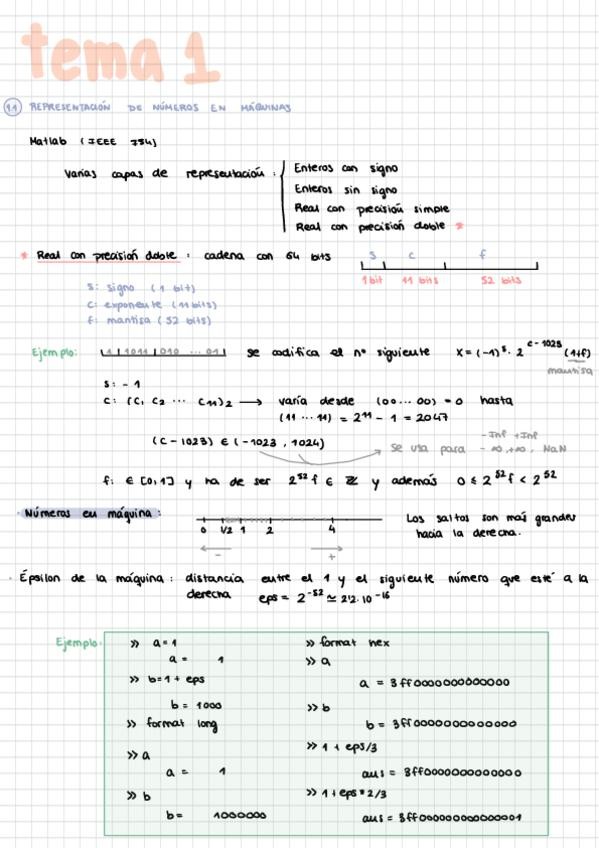 tema 1
1.1 REPRESENTACIÓN DE NÚMEROS EN MÁQUINAS
Matlab (IEEE 754)
Varias capas de representación:
Enteros con signo
Enteros sin signo
Real con precisión simple
Real con precisión doble *
* Real con precisión doble: cadena con 64 bits
s c f
1 bit 11 bits 52 bits
s: signo (1 bit)
c: exponente (11 bits)
f: mantisa (52 bits)
Ejemplo: 1 | 1011 | 010 ... 01 se codifica el nº siguiente X = (-1)^s · 2^(c-1023) (1+f)
mantisa
s: -1
c: (c1 c2 ... c11)2 → varía desde (00...00) = 0 hasta
(11...11) = 2^11 - 1 = 2047
(c-1023) ∈ (-1023, 1024)
se usa para -Inf +Inf
-∞, +∞, NaN
f: ∈ [0,1] y ha de ser 2^52 f ∈ ℤ y además 0 ≤ 2^52 f < 2^52
· Números en máquina:
0 1/2 1 2 4
- +
Los saltos son más grandes
hacia la derecha.
· Épsilon de la máquina: distancia entre el 1 y el siguiente número que esté a la
derecha eps = 2^-52 ≃ 2'2·10^-16
Ejemplo:
>> a=1
a = 1
>> b=1+eps
b = 1000
>> format long
>> a
a = 1
>> b
b = 1000000
>> format hex
>> a
a = 3ff0000000000000
>> b
b = 3ff0000000000000
>> 1+eps/3
ans = 3ff0000000000000
>> 1+eps*2/3
ans = 3ff0000000000001